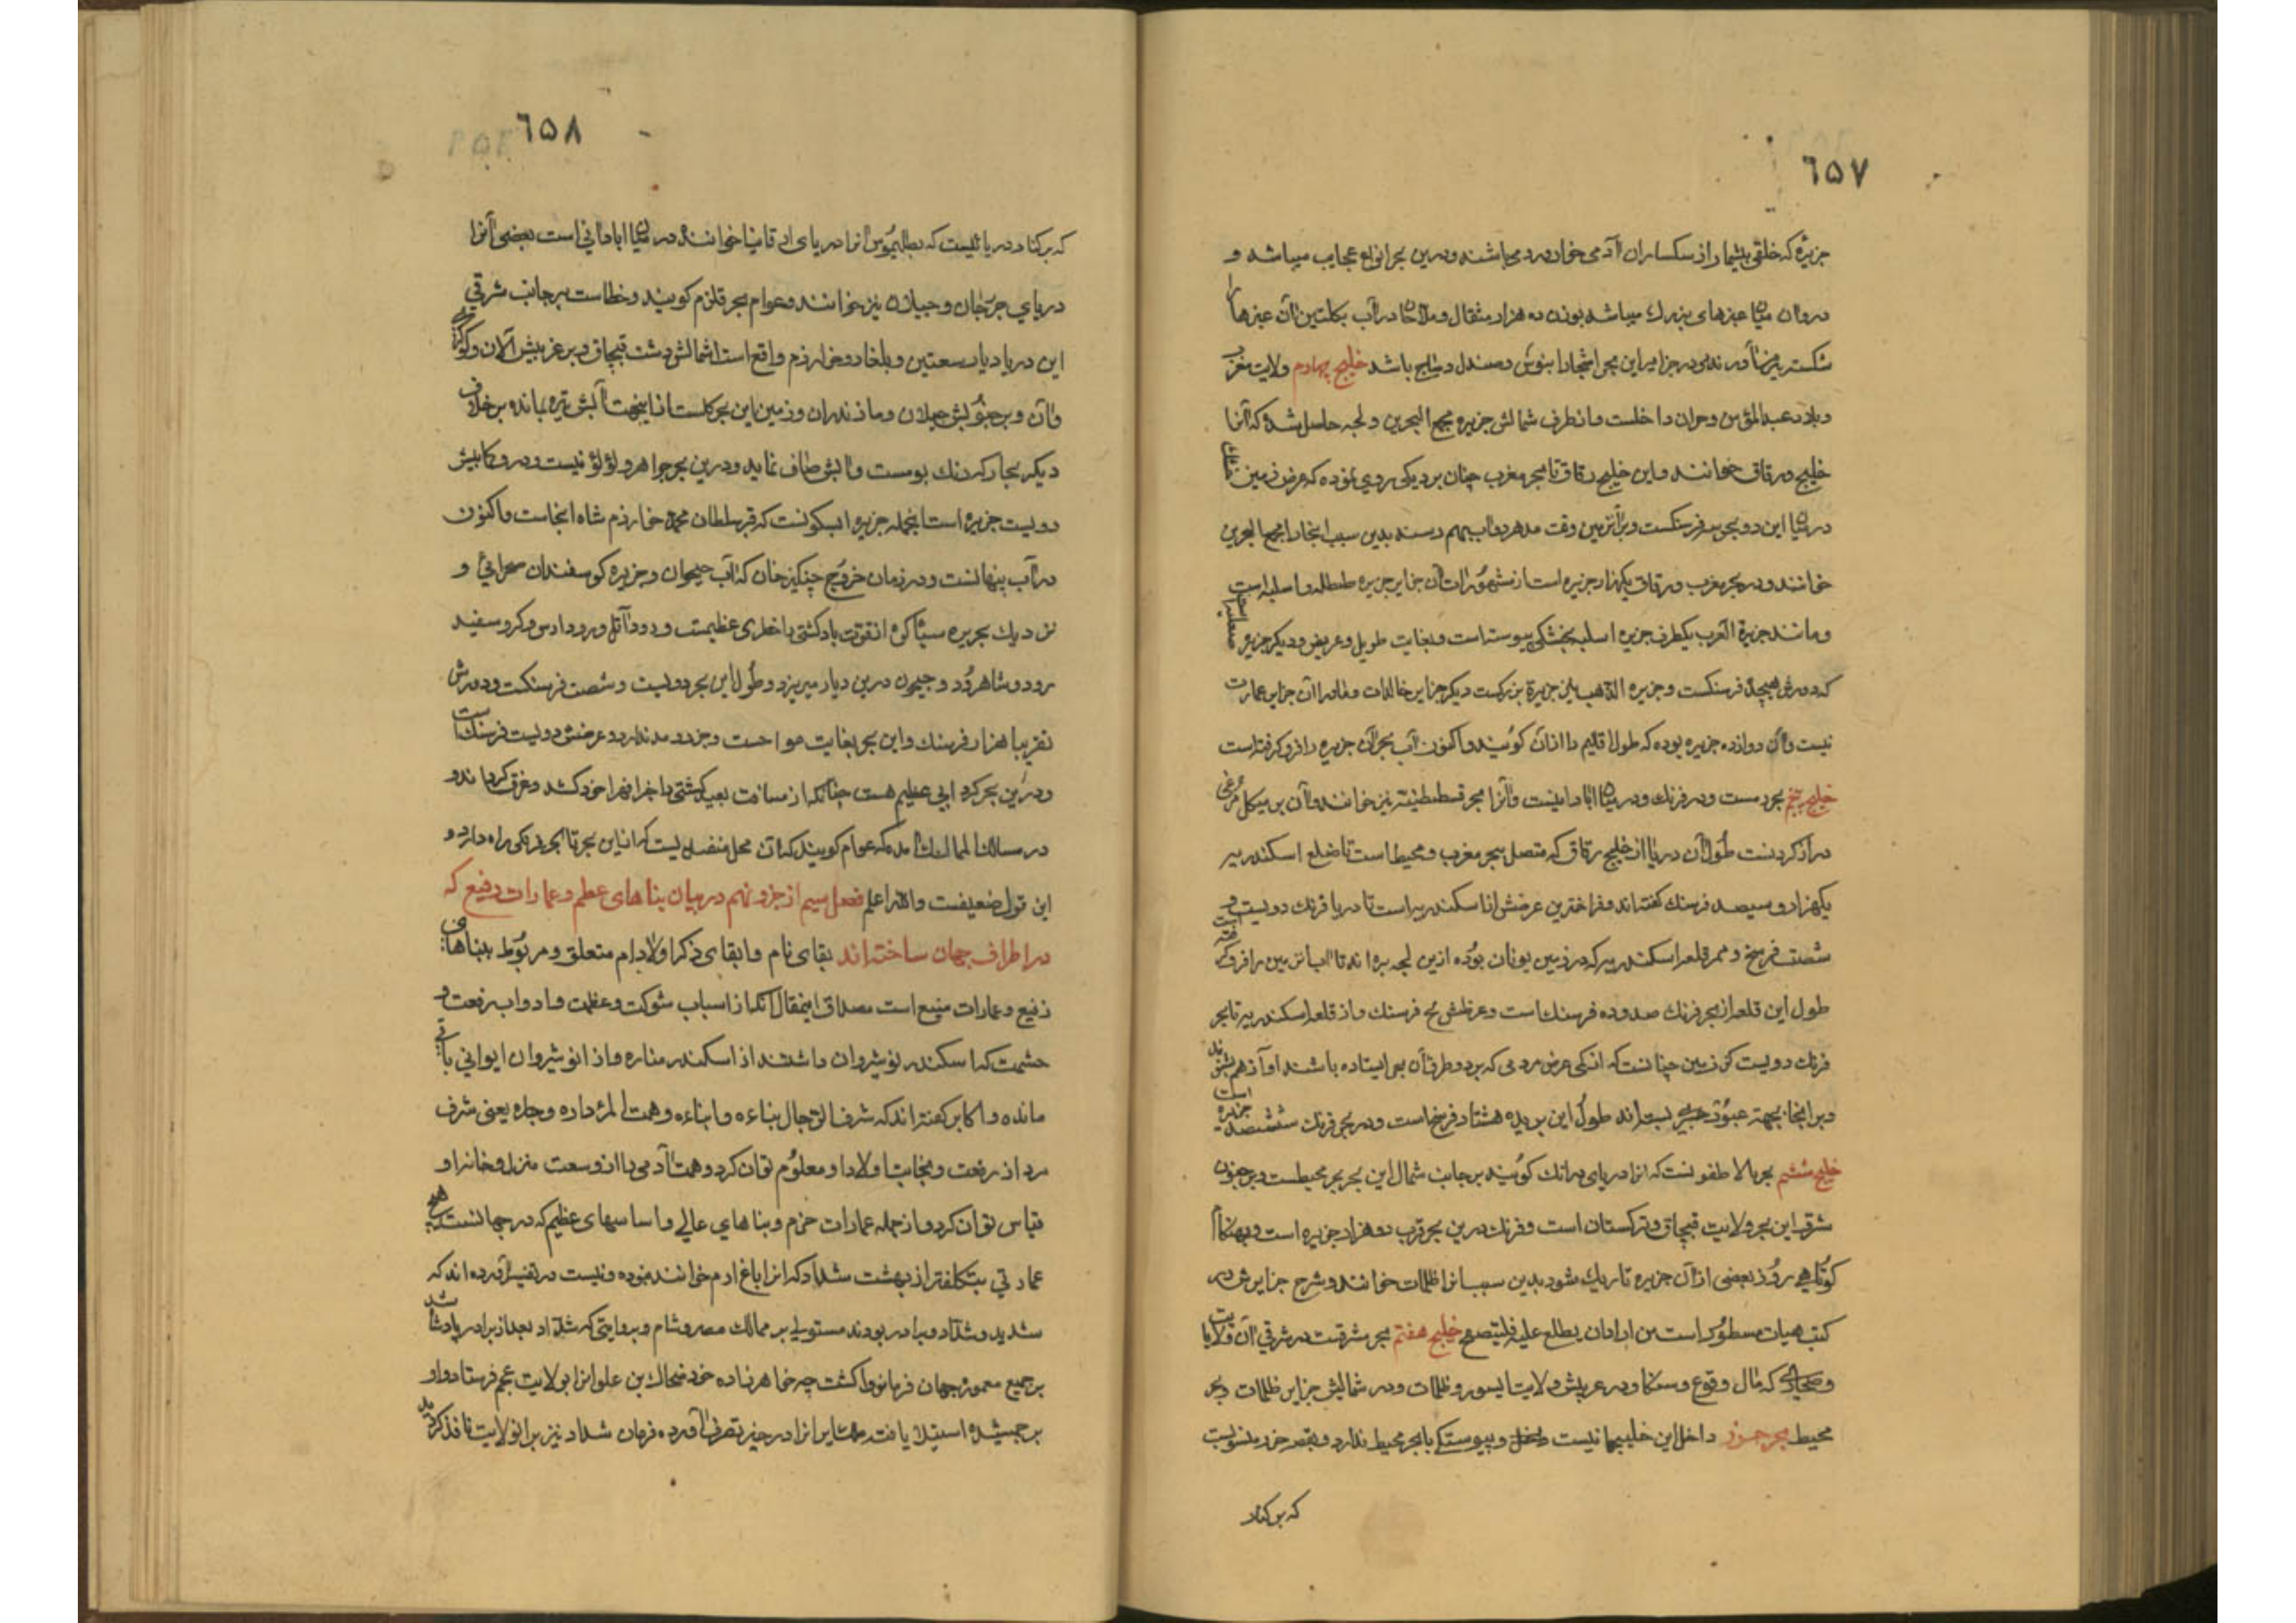 ٦۵٧
جزیره که خلقی بیشمار از سکساران آدمی خوار دروی باشند ودرین بحر انواع عجایب میباشد و
دروان میان عنبرهای بزرك میباشد بوزن ده هزار مثقال وملاحان در آب بکلتین آن عنبرها را
شکسته در جزایر این بحر اشجار ابنوس وصندل وساج باشد خلیج چهارم ولایت مغرب
وبلاد عبدالمؤمن وحران داخلست واز طرف شمالش جزیره مجمع البحرین و لجه حاصل شده که آنرا
خلیج ورقاق خوانند واین خلیج رقاق تا بحر مغرب چنان بردیکی روی نموده که عرض زمین خشك
در میان این دو بحر سه فرسنکست ودر آنزمین وقت مد هر دو آب بهم رسند بدین سبب انجا را مجمع البحرین
خوانند ودر بحر مغرب ورقاق یکهزار جزیره است از مشهورات آن جزایر جزیره طیطله و اسلیه است
ومانند جزیرة العرب یکطرف جزیره اسلیه بخشکی پیوسته است وبغایت طویل وعریض ودیکر جزیره
که دورش هیجده فرسنکست وجزیره الذهب نیز جزیرة بزرکست دیکر جزایر خالدات وماورا آن جزایر عمارت
نیست وآن دوازده جزیره بوده که طول اقلیم را از آن کویند واکنون آب بحر آن جزیره را فرو کرفته است
خلیج پنجم بحر دمست ودر فرنك ودر میان ابادانیست وآنرا بحر قسطنطنیه نیز خوانند وآن بر هیکل مرغی
دراز کردنست طول آن دریا از خلیج رقاق که متصل ببحر مغرب ومحیط است تا ضلع اسکندریه
یکهزار وسیصد فرسنك کفته اند وفراخترین عرضش از اسکندریه است تا دریا فرنك دویست و
شصت فرسخ وممر قلعه اسکندریه که در زمین یونان بوده ازین لجه بره اند تا آب انزمین را فرو کرفته است
طول این قلعه از بحر فرنك صد وده فرسنك است وعرضش نج فرسنك واز قلعه اسکندریه تا بحر
فرنك دویست کز زمین چنانست که از کمی عرض مردمی که بر دو طرف آن بحر ایستاده باشند اواز هم بشنوند
وبر انجا بجهته عبور جسر بسته اند طول این بریده هشتاد فرسخ است ودر بحر فرنك ششصد جزیره است
خلیج ششم بحر بالاطقونست که انرا دریای درانك کویند بر جانب شمال این بحر بحر محیطست وبر جنوب
شرقی این بحر ولایت قبچاق وترکستان است وفرنك درین بحر قرب دو هزار جزیره است وبهنکام
کوتاهی روز بعضی از آن جزیره تاریك شود بدین سبب انرا ظلمات خوانند وشرح جزایرش در
کتب هیات مسطور است من اراد ان یطلع علیه فلیتصفح خلیج هفتم بحر شرقست در شرقی آن ولایت
که مال وقوع وسنکا ودر عریبش ولایت ایسور وظلمات ودر شمالیش جزایر ظلمات وبحر
محیط بحر خزر داخل این خلیجها نیست وپیوستکی با بحر محیط ندارد وبقصر خزر منسوبست
که بر کنار
٦۵٨
که بر کنار دریائیست که بطلیموس انرا دریای ارقانیا خوانند در میان ابادانی است بعضی آنرا
دریای جرجان وجیلان نیز خوانند وعوام بحر قلزم کویند وخطاست بر جانب شرقی
این دریا دیار سعتین وبلغار وخوارزم واقع است شمالش دشت قبچاق وبر غربیش آلان و
وآن وبر جنوبش جیلان ومازندران وزمین این بحر کلست ازاینجهت آبش تیره نماند برخلاف
دیکر بحار که رنك بومست وآبش صاف نماید ودرین بحر جواهر و لؤلؤ نیست ودر وکمابیش
دویست جزیره است اینجمله جزیره ابسکونست که قبر سلطان محمد خوارزم شاه انجاست واکنون
در آب پنهانست ودر زمان خروج چنکیز خان که آب جیحوان وجزیره کوسفندان صحرائی و
نزدیك بجزیره سیاکوه از قوت باد کشتی را خطری عظیمست و رود آتل ورود ارس وکر وسفید
رود وشاهرود وجیحون درین دیار میریزد وطول این بحر دویست وشصت فرسنکست ودورش
تقریبا هزار فرسنك واین بحر بغایت مواجست وجزر ومد ندارد وعرضش دویست فرسنك است
ودرین بحر کرد ابی عظیم هست چنانکه از مسافت بعید کشتی را فرا خود کشد وغرق کرداند و
در مسالك الممالك امده که عوام کویند که آن محل منفذیست که از این بحر تا بحر دیکر راه دارد و
این قول ضعیفست والله اعلم فصل سیم از جزو نهم در بیان بناهای عظم وعمارات رفیع که
در اطراف جهان ساخته اند بقای نام وابقای ذکر اولاد ادم متعلق ومربوط ببناهای
رفیع وعمارات منیع است مصداق اینمقال آنکه از اسباب شوکت وعظمت وادواب رفعت و
حشمت که اسکندر نوشیروان داشتند از اسکندر مناره واز انوشیروان ایوانی باقی
مانده واکابر کفته اند که شرف الرجال بناءه وابناءه وهمت المرء داره وجاره یعنی شرف
مرد از رفعت ونجابت اولاد او معلوم توان کرد وهمت آدمی را از وسعت منزل وخانه او
قیاس توان کرد واز جمله عمارات حزم وبناهای عالی واساسهای عظیم که در جهانست هیچ
عمارتی بتکلفتر از بهشت شداد که انرا باغ ارم خوانند نبوده ونیست در تفسیر آورده اند که
شدید وشداد وبرادر بودند مستولی بر ممالك مصر وشام وبروایتی که شداد بعد از برادر پادشاه شد
بر جمیع معموره جهان فرمانروا کشت چه خواهرزاده خود ضحاك بن علوان را بولایت عجم فرستاد واو
بر جمشید استیلا یافته ایرانرا در حیز تصرف آورده فرمان شداد نیز بر انولایت نافذ کردید